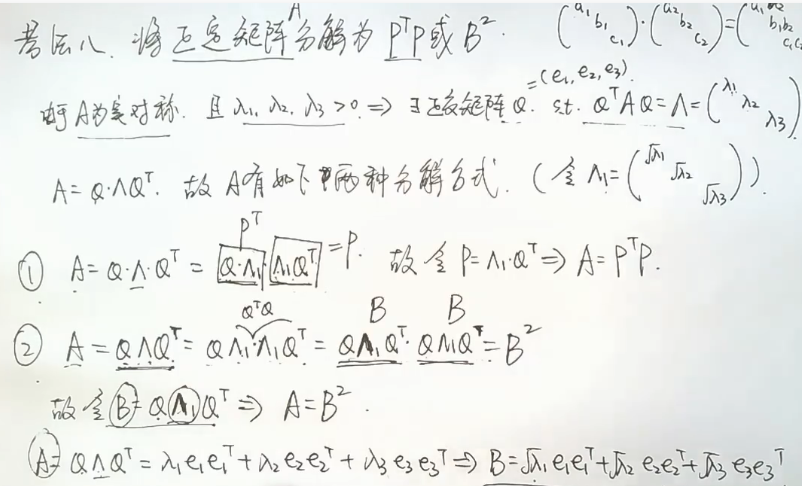 考法八. 将正定矩阵A分解为 PᵀP 或 B². (a₁ b₁ c₁)·(a₂ b₂ c₂)=(a₁a₂ b₁b₂ c₁c₂
由于 A为实对称. 且 λ₁, λ₂, λ₃ > 0 ⇒ ∃ 正交矩阵 Q =(e₁, e₂, e₃). s.t. QᵀAQ = Λ = (λ₁ λ₂ λ₃)
A = Q·ΛQᵀ. 故 A有如下两种分解方式. (令 Λ₁ = (√λ₁ √λ₂ √λ₃)).
① A = Q·Λ·Qᵀ = Q·Λ₁ · Λ₁Qᵀ = P. Pᵀ 故令 P = Λ₁·Qᵀ ⇒ A = PᵀP.
QᵀQ B B
② A = QΛQᵀ = QΛ₁·Λ₁Qᵀ = QΛ₁Qᵀ · QΛ₁Qᵀ = B²
故令 B = QΛ₁Qᵀ ⇒ A = B².
A = QΛQᵀ = λ₁e₁e₁ᵀ + λ₂e₂e₂ᵀ + λ₃e₃e₃ᵀ ⇒ B = √λ₁e₁e₁ᵀ + √λ₂e₂e₂ᵀ + √λ₃e₃e₃ᵀ